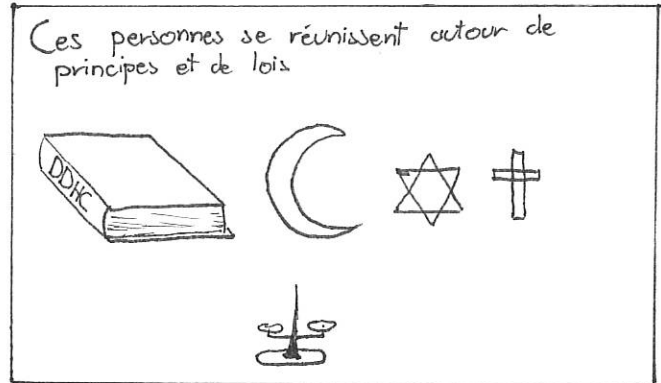 Ces personnes se réunissent autour de
principes et de lois
DDHC